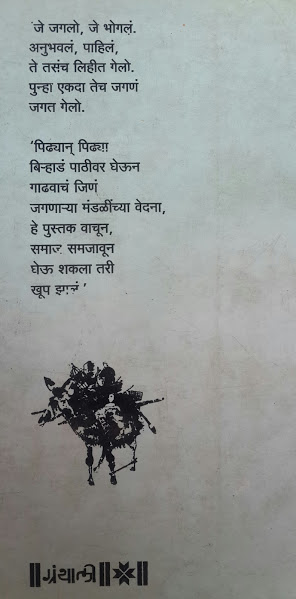 'जे जगलो, जे भोगलं.
अनुभवलं, पाहिलं,
ते तसंच लिहीत गेलो.
पुन्हा एकदा तेच जगणं
जगत गेलो.
'पिढ्यान् पिढ्या
बिऱ्हाडं पाठीवर घेऊन
गाढवाचं जिणं
जगणाऱ्या मंडळींच्या वेदना,
हे पुस्तक वाचून,
समाज समजावून
घेऊ शकला तरी
खूप झालं'
ग्रंथाली